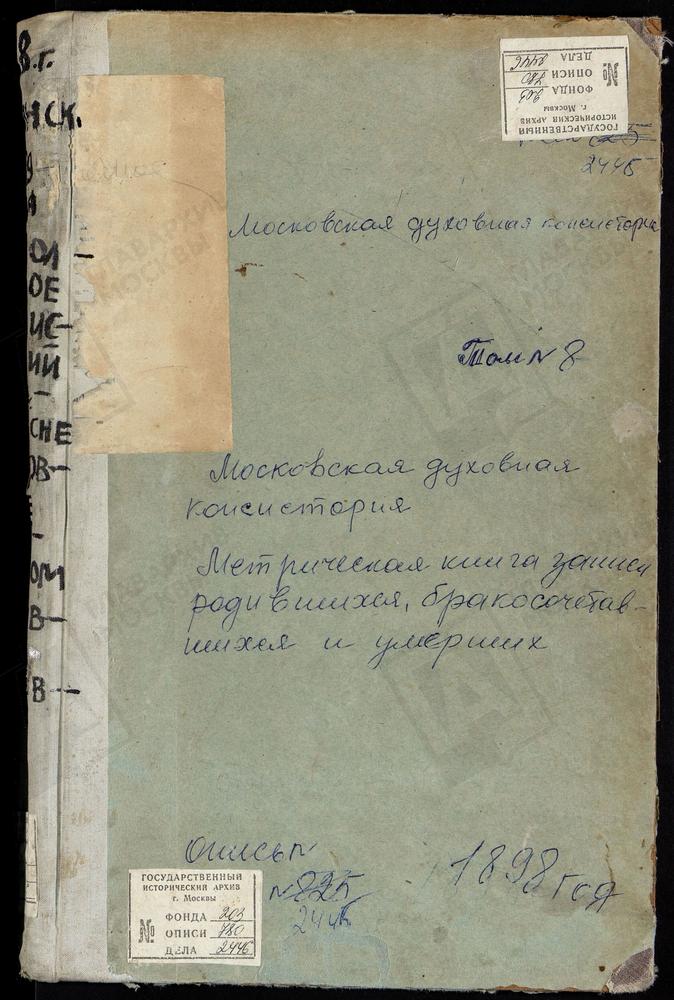 8.г.
НСК.
ОЛ-
ОЕ
ИС-
ИИ
-
СНЕ
ОВ-
-
ОМ
В-
В-
ГОСУДАРСТВЕННЫЙ
ИСТОРИЧЕСКИЙ АРХИВ
г. Москвы
№ ФОНДА 203
ОПИСИ 780
ДЕЛА 2446
2445
Московская духовная консистория
Том N 8
Московская духовная
консистория
Метрическая книга записи
родившихся, бракосочетав-
шихся и умерших
Опись N
1898 год
N 825
2445
ГОСУДАРСТВЕННЫЙ
ИСТОРИЧЕСКИЙ АРХИВ
г. Москвы
№ ФОНДА 203
ОПИСИ 780
ДЕЛА 2446